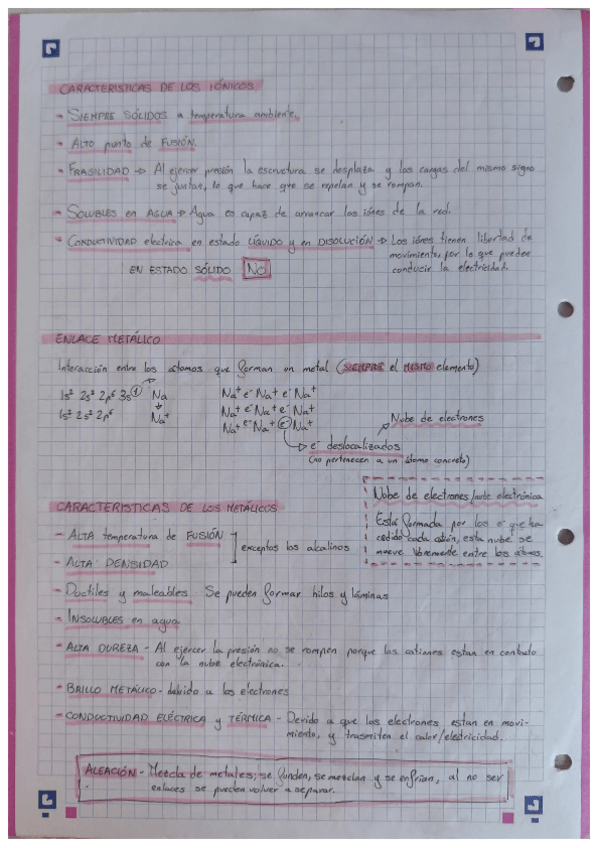 CARACTERISTICAS DE LOS IÓNICOS
- SIEMPRE SÓLIDOS a temperatura ambiente.
- ALTO punto de FUSIÓN.
- FRAGILIDAD → Al ejercer presión la escructura se desplaza y las cargas del mismo signo
se juntan, lo que hace que se repelan y se rompan.
- SOLUBLES EN AGUA → Agua es capaz de arrancar los iónes de la red.
- CONDUCTIVIDAD electrica en estado LÍQUIDO y en DISOLUCIÓN → Los iónes tienen libertad de
movimiento, por lo que pueden
conducir la electricidad.
EN ESTADO SÓLIDO NO
ENLACE METÁLICO
Interacción entre los átomos que forman un metal (SIEMPRE el MISMO elemento)
1s² 2s² 2p⁶ 3s① Na
1s² 2s² 2p⁶ Na⁺
Na⁺ e⁻ Na⁺ e⁻ Na⁺
Na⁺ e⁻ Na⁺ e⁻ Na⁺
Na⁺ e⁻ Na⁺ e⁻ Na⁺
Nube de electrones
e⁻ deslocalizados
(no pertenecen a un átomo concreto)
Nube de electrones/nube electrónica
Está formada por los e⁻ que ha
cedido cada catión, esta nube se
mueve libremente entre los átomos.
CARACTERISTICAS DE LOS METÁLICOS
- ALTA temperatura de FUSIÓN
- ALTA DENSIDAD
exceptos los alcalinos
- Ductiles y maleables. Se pueden formar hilos y láminas
- INSOLUBLES en agua
- ALTA DUREZA - Al ejercer la presión no se rompen porque los cationes estan en contacto
con la nube electrónica.
- BRILLO METÁLICO - debido a los electrones
- CONDUCTIVIDAD ELÉCTRICA y TÉRMICA - Devido a que los electrones estan en movi-
miento, y trasmiten el calor/electricidad.
ALEACIÓN - Mezcla de metales; se funden, se mezclan y se enfrian, al no ser
enlaces se pueden volver a separar.